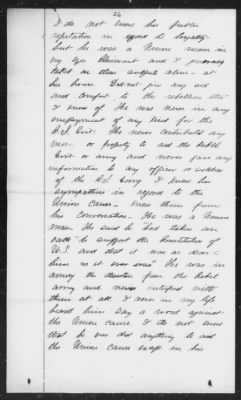 26
I do not know his public
reputation in regard to loyalty
but he was a Union man in
my
talked on this subject alone - at
his house. Did not give any aid
and comfort to the rebellion that
I know of. He was never in any
employment of any kind for the
C.S. Govt. He never contributed any
mon- or property to aid the Rebel
Govt or army and never gave any
information to any officer or soldier
of the Reb army I knew his
sympathies in regard to the
Union Cause - knew them from
his Conversation. He was a Union
man. He said he "had taken an
oath" to support the Constitution of
U.S. and that it was as dear
him as it ever was" He was in
among the deserters from the Rebel
army and never interfered with
them at all. I never in my life
heard him say a word against
the Union cause I do not know
that he ever did anything to aid
the Union cause except in his